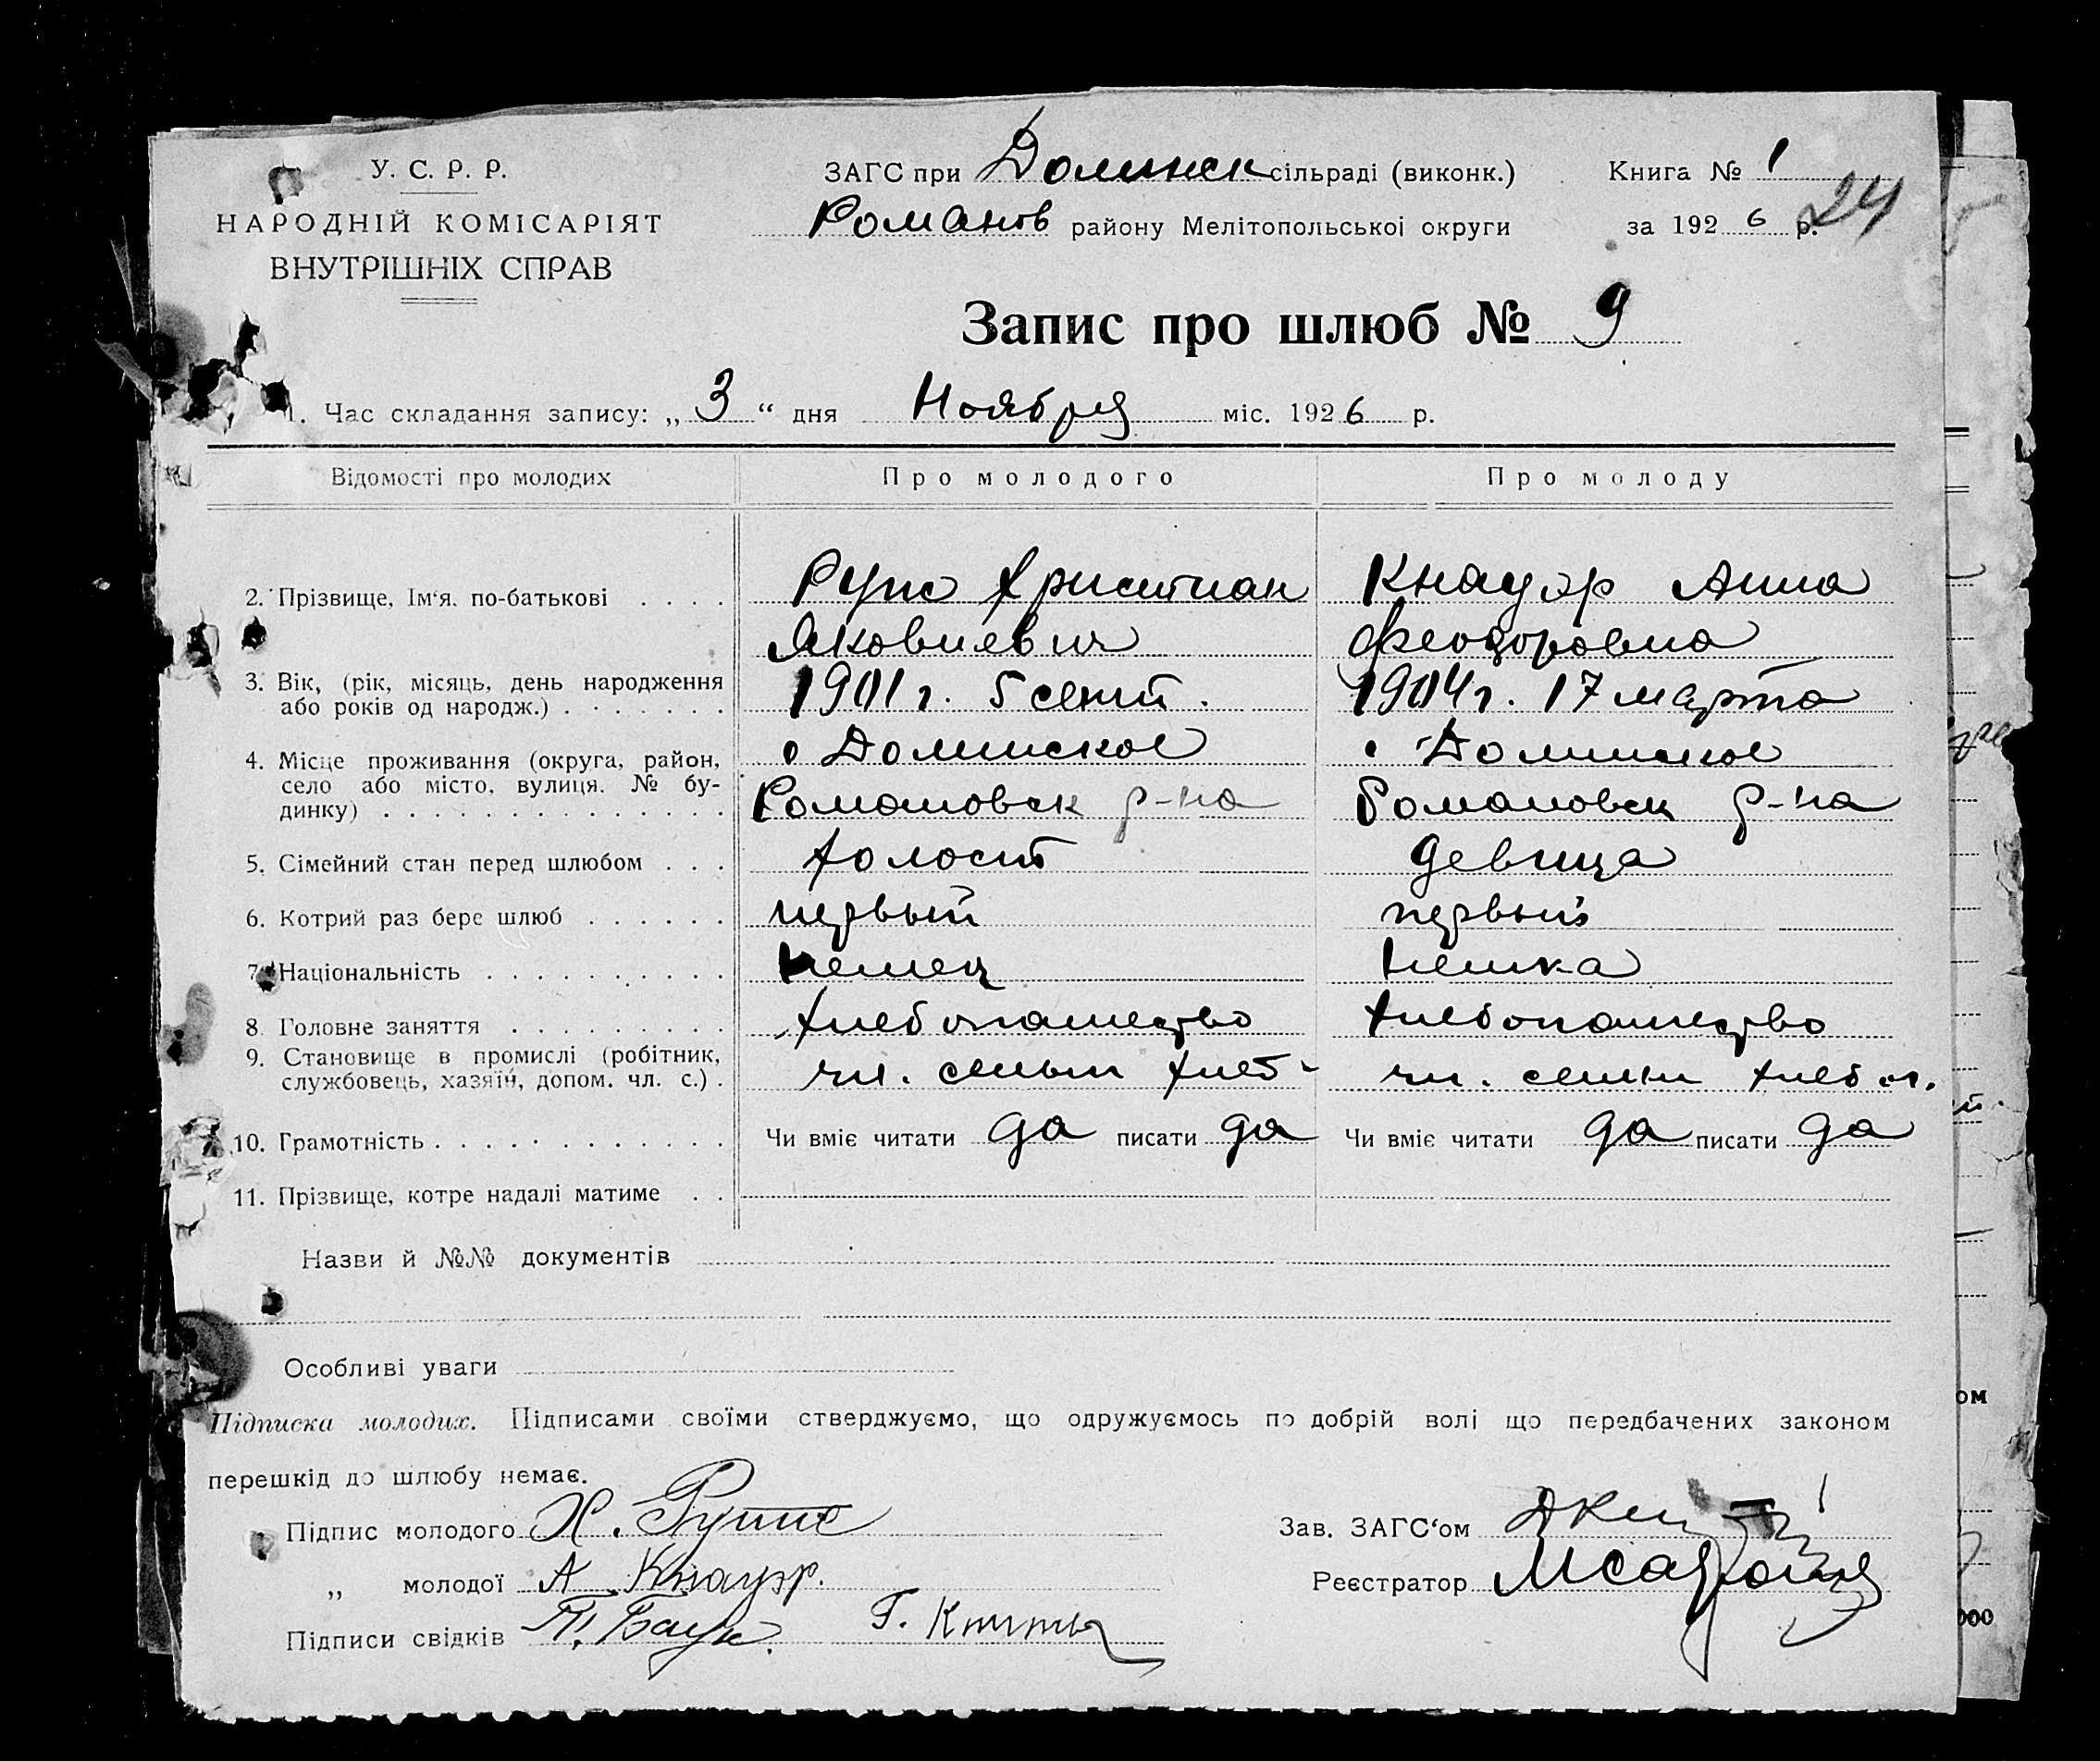 У. С. Р. Р.
НАРОДНІЙ КОМІСАРІЯТ
ВНУТРІШНІХ СПРАВ
ЗАГС при Долинск сільраді (виконк.)
Романов району Мелітопольської округи
Книга № 1
за 1926 р. 24
Запис про шлюб № 9
1. Час складання запису: „3“ дня Ноября міс. 1926 р.
Відомості про молодих Про молодого Про молоду
2. Прізвище, Ім‘я, по-батькові . . . . Рупс Християн Кнауэр Анна
Яковлевич Феодоровна
3. Вік, (рік, місяць, день народження
або років од народж.) . . . . . . . 1901 г. 5 сент. 1904 г. 17 марта
4. Місце проживання (округа, район, с Долинское с Долинское
село або місто, вулиця, № бу-
динку) . . . . . . . . . . . . . . Романовск р-на Романовск р-на
5. Сімейний стан перед шлюбом . . . холост девица
6. Котрий раз бере шлюб . . . . . . первый первый
7. Національність . . . . . . . . . . немец немка
8. Головне заняття . . . . . . . . . хлебопашество хлебопашество
9. Становище в промислі (робітник,
службовець, хазяїн, допом. чл. с.) . чл. семьи хлеб- чл. семьи хлеб.
10. Грамотність . . . . . . . . . . . . Чи вміє читати да писати да Чи вміє читати да писати да
11. Прізвище, котре надалі матиме . .
Назви й №№ документів
Особливі уваги
Підписка молодих. Підписами своїми стверджуємо, що одружуємось по добрій волі що передбачених законом
перешкід до шлюбу немає.
Підпис молодого Х. Руппс
„ молодої А Кнауэр.
Підписи свідків
Г.
Зав. ЗАГС‘ом
Реєстратор